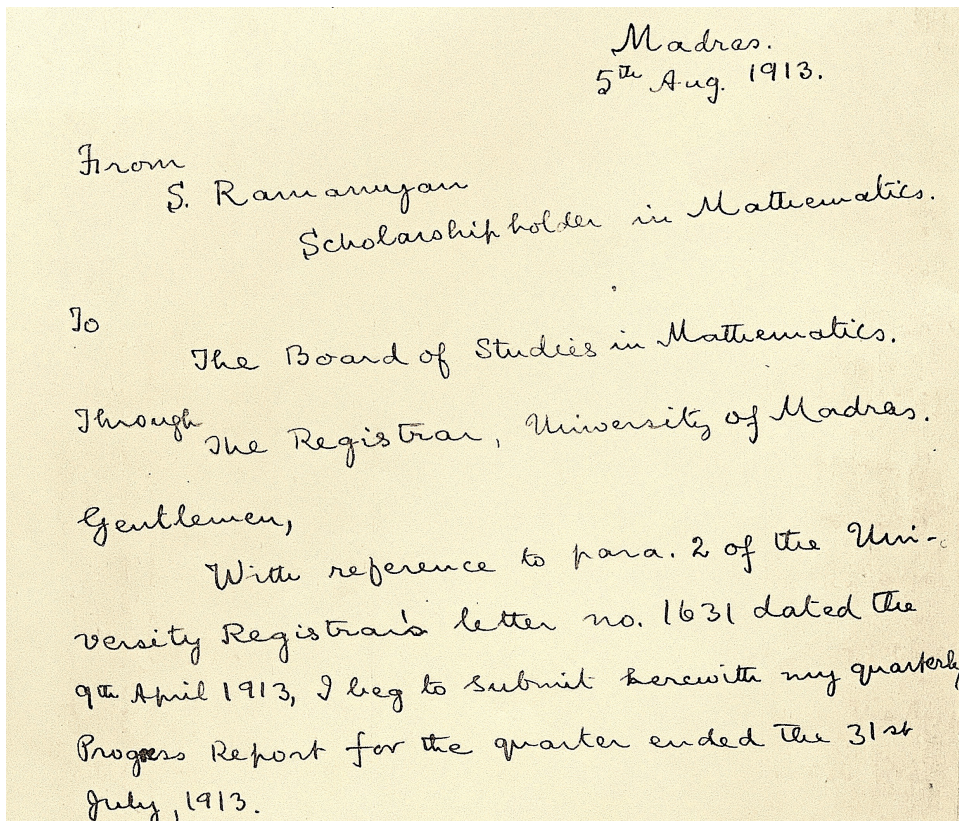 Madras.
5th Aug. 1913.
From
S. Ramanujan
Scholarship holder in Mathematics.
To
The Board of Studies in Mathematics.
Through
The Registrar, University of Madras.
Gentlemen,
With reference to para. 2 of the Uni-
versity Registrar's letter no. 1631 dated the
9th April 1913, I beg to submit herewith my quarterly
Progress Report for the quarter ended the 31st
July, 1913.